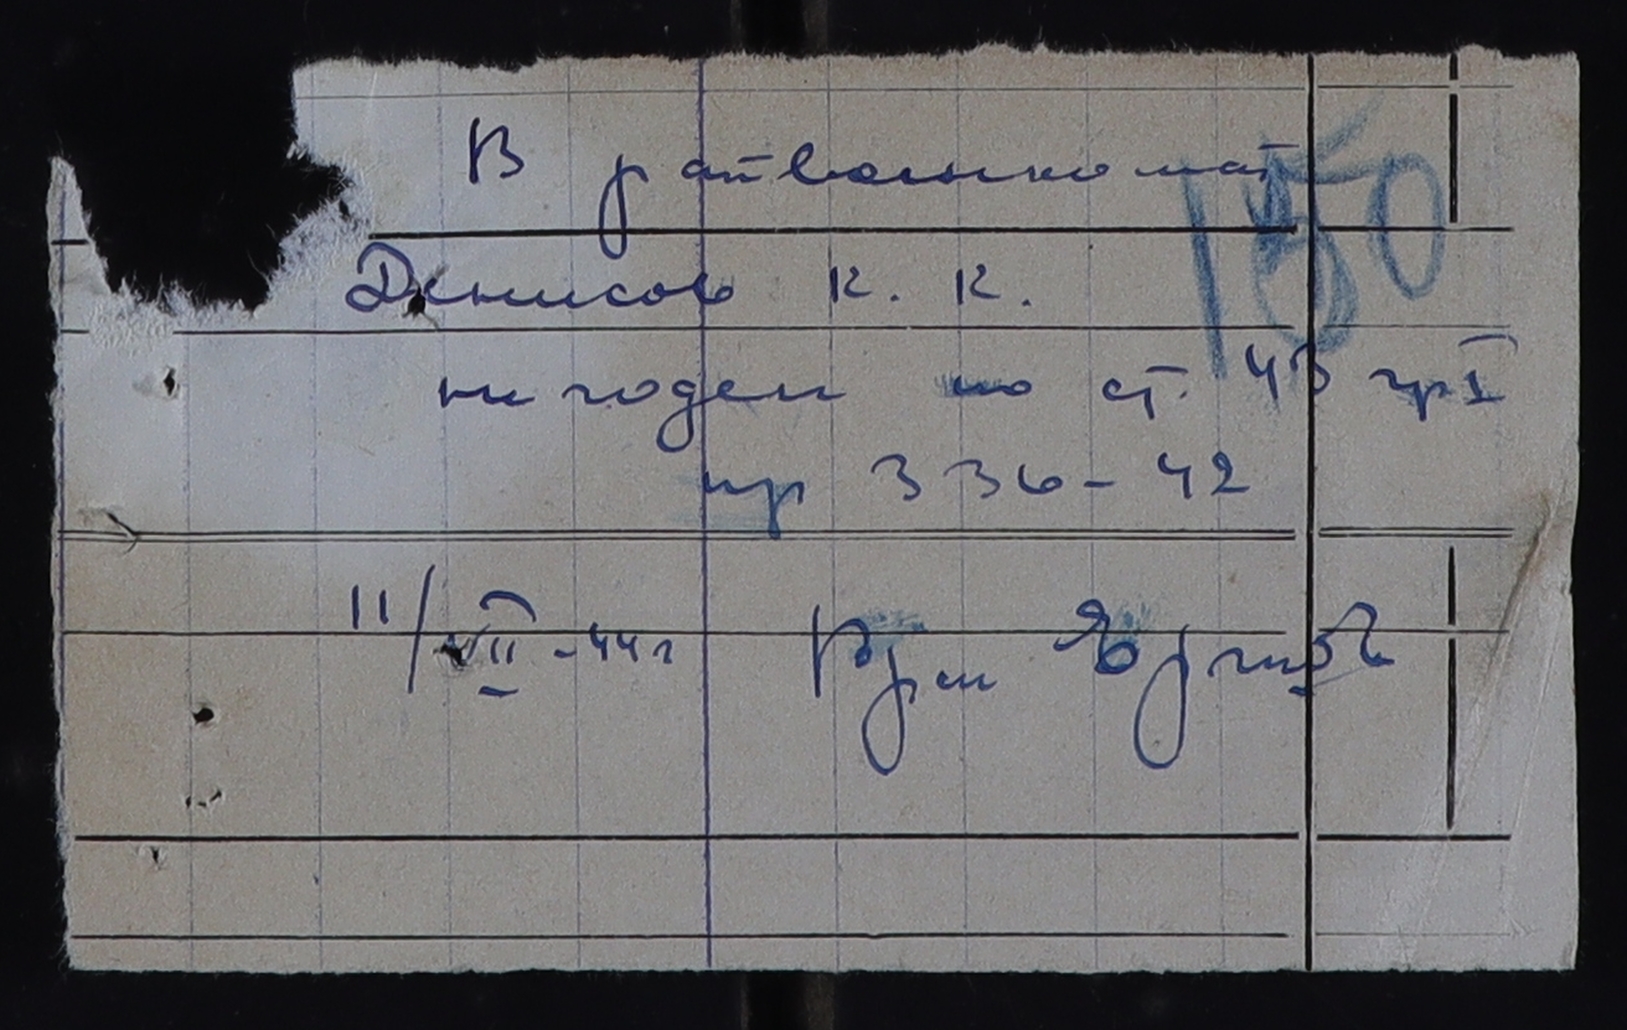 В райвоенкомат
150
Денисов К. К.
не годен по ст. 43 гр I
пр 336-42
11/VII-44г Врач